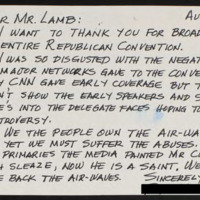 R MR. LAMB: AU
I WANT TO THANK YOU FOR BROAD
ENTIRE REPUBLICAN CONVENTION.
I WAS SO DISGUSTED WITH THE NEGAT
MAJOR NETWORKS GAVE TO THE CONVE
Y CNN GAVE EARLY COVERAGE BUT T
NT SHOW THE EARLY SPEAKERS AND S
E'S INTO THE DELEGATE FACES HOPING TO
TROVERSY.
WE THE PEOPLE OWN THE AIR-WA
YET WE MUST SUFFER THE ABUSES.
PRIMARIES THE MEDIA PAINTED MR C
H SLEAZE, NOW HE IS A SAINT, WE
E BACK THE AIR-WAVES. SINCEREL